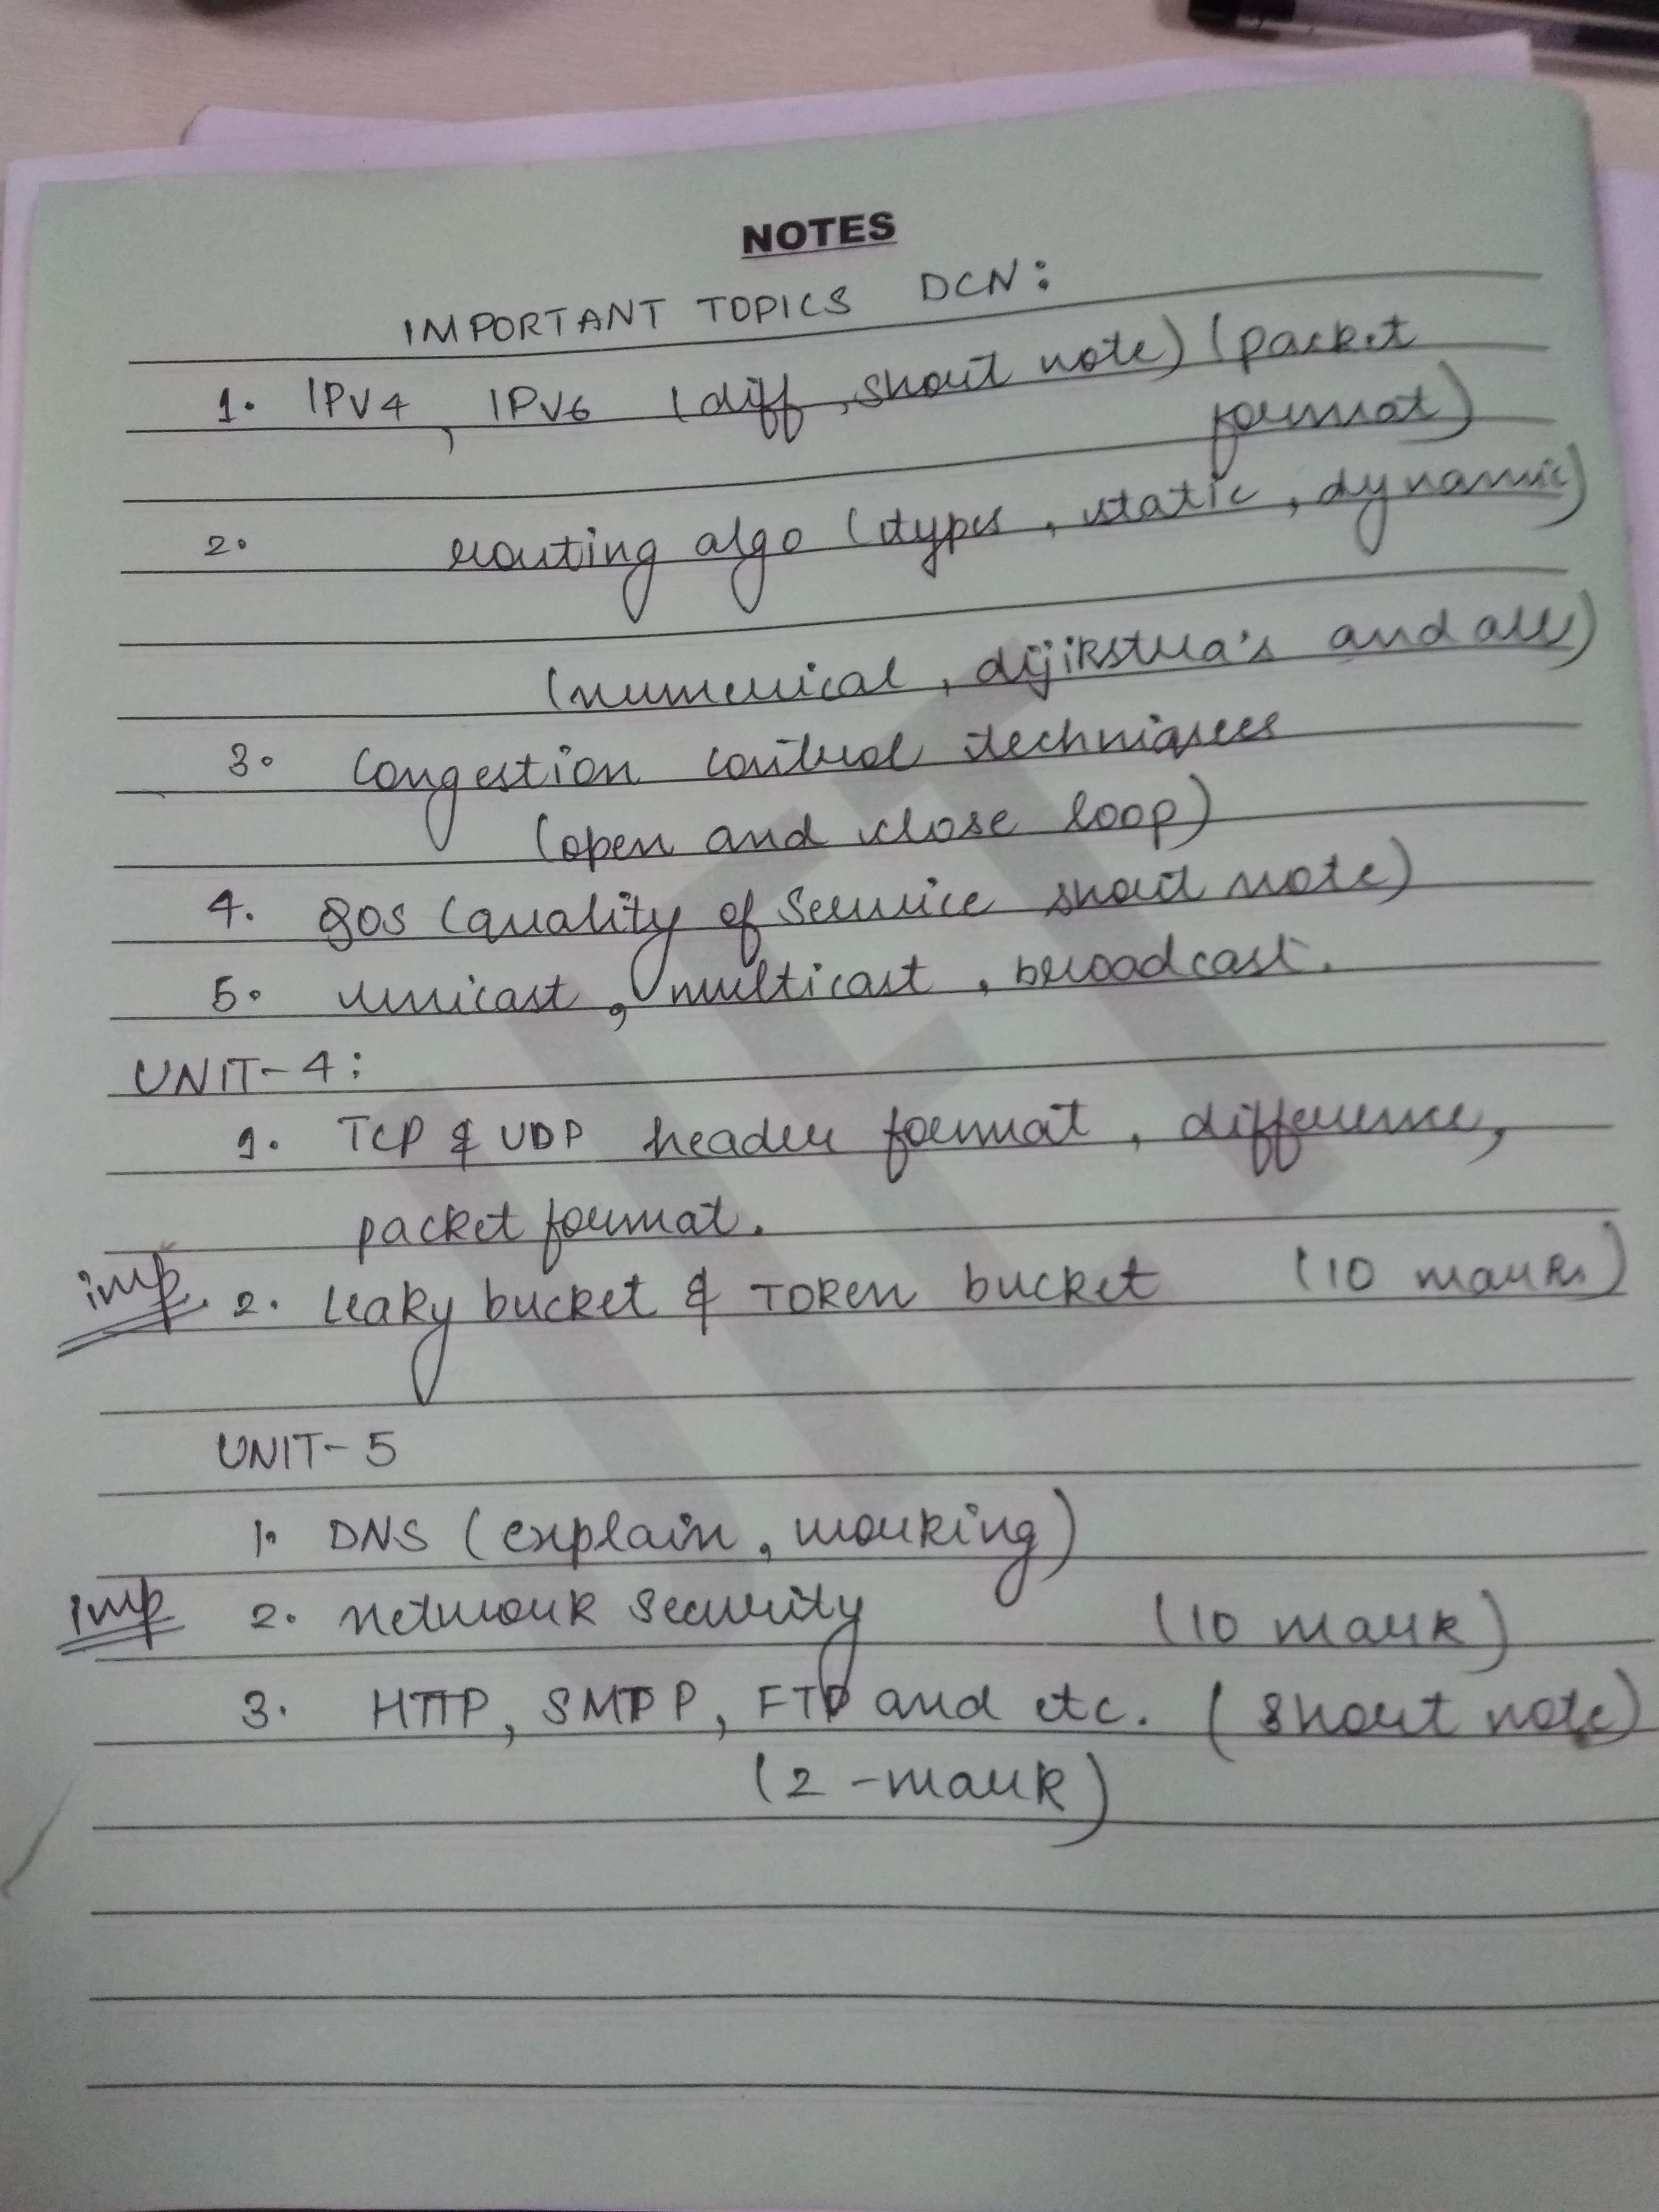 NOTES
IMPORTANT TOPICS DCN:
1. IPV4, IPV6 (diff, short note) (packet
format)
2. routing algo (types, static, dynamic)
(numerical, dijikstra's and all)
3. Congestion control techniques
(open and close loop)
4. QOS (quality of service short note)
5. unicast, multicast, broadcast.
UNIT-4:
1. TCP & UDP header format, difference,
packet format.
imp 2. leaky bucket & Token bucket (10 marks)
UNIT-5
1. DNS (explain, working)
imp 2. network security (10 mark)
3. HTTP, SMTP, FTP and etc. (short note)
(2-mark)
UIET